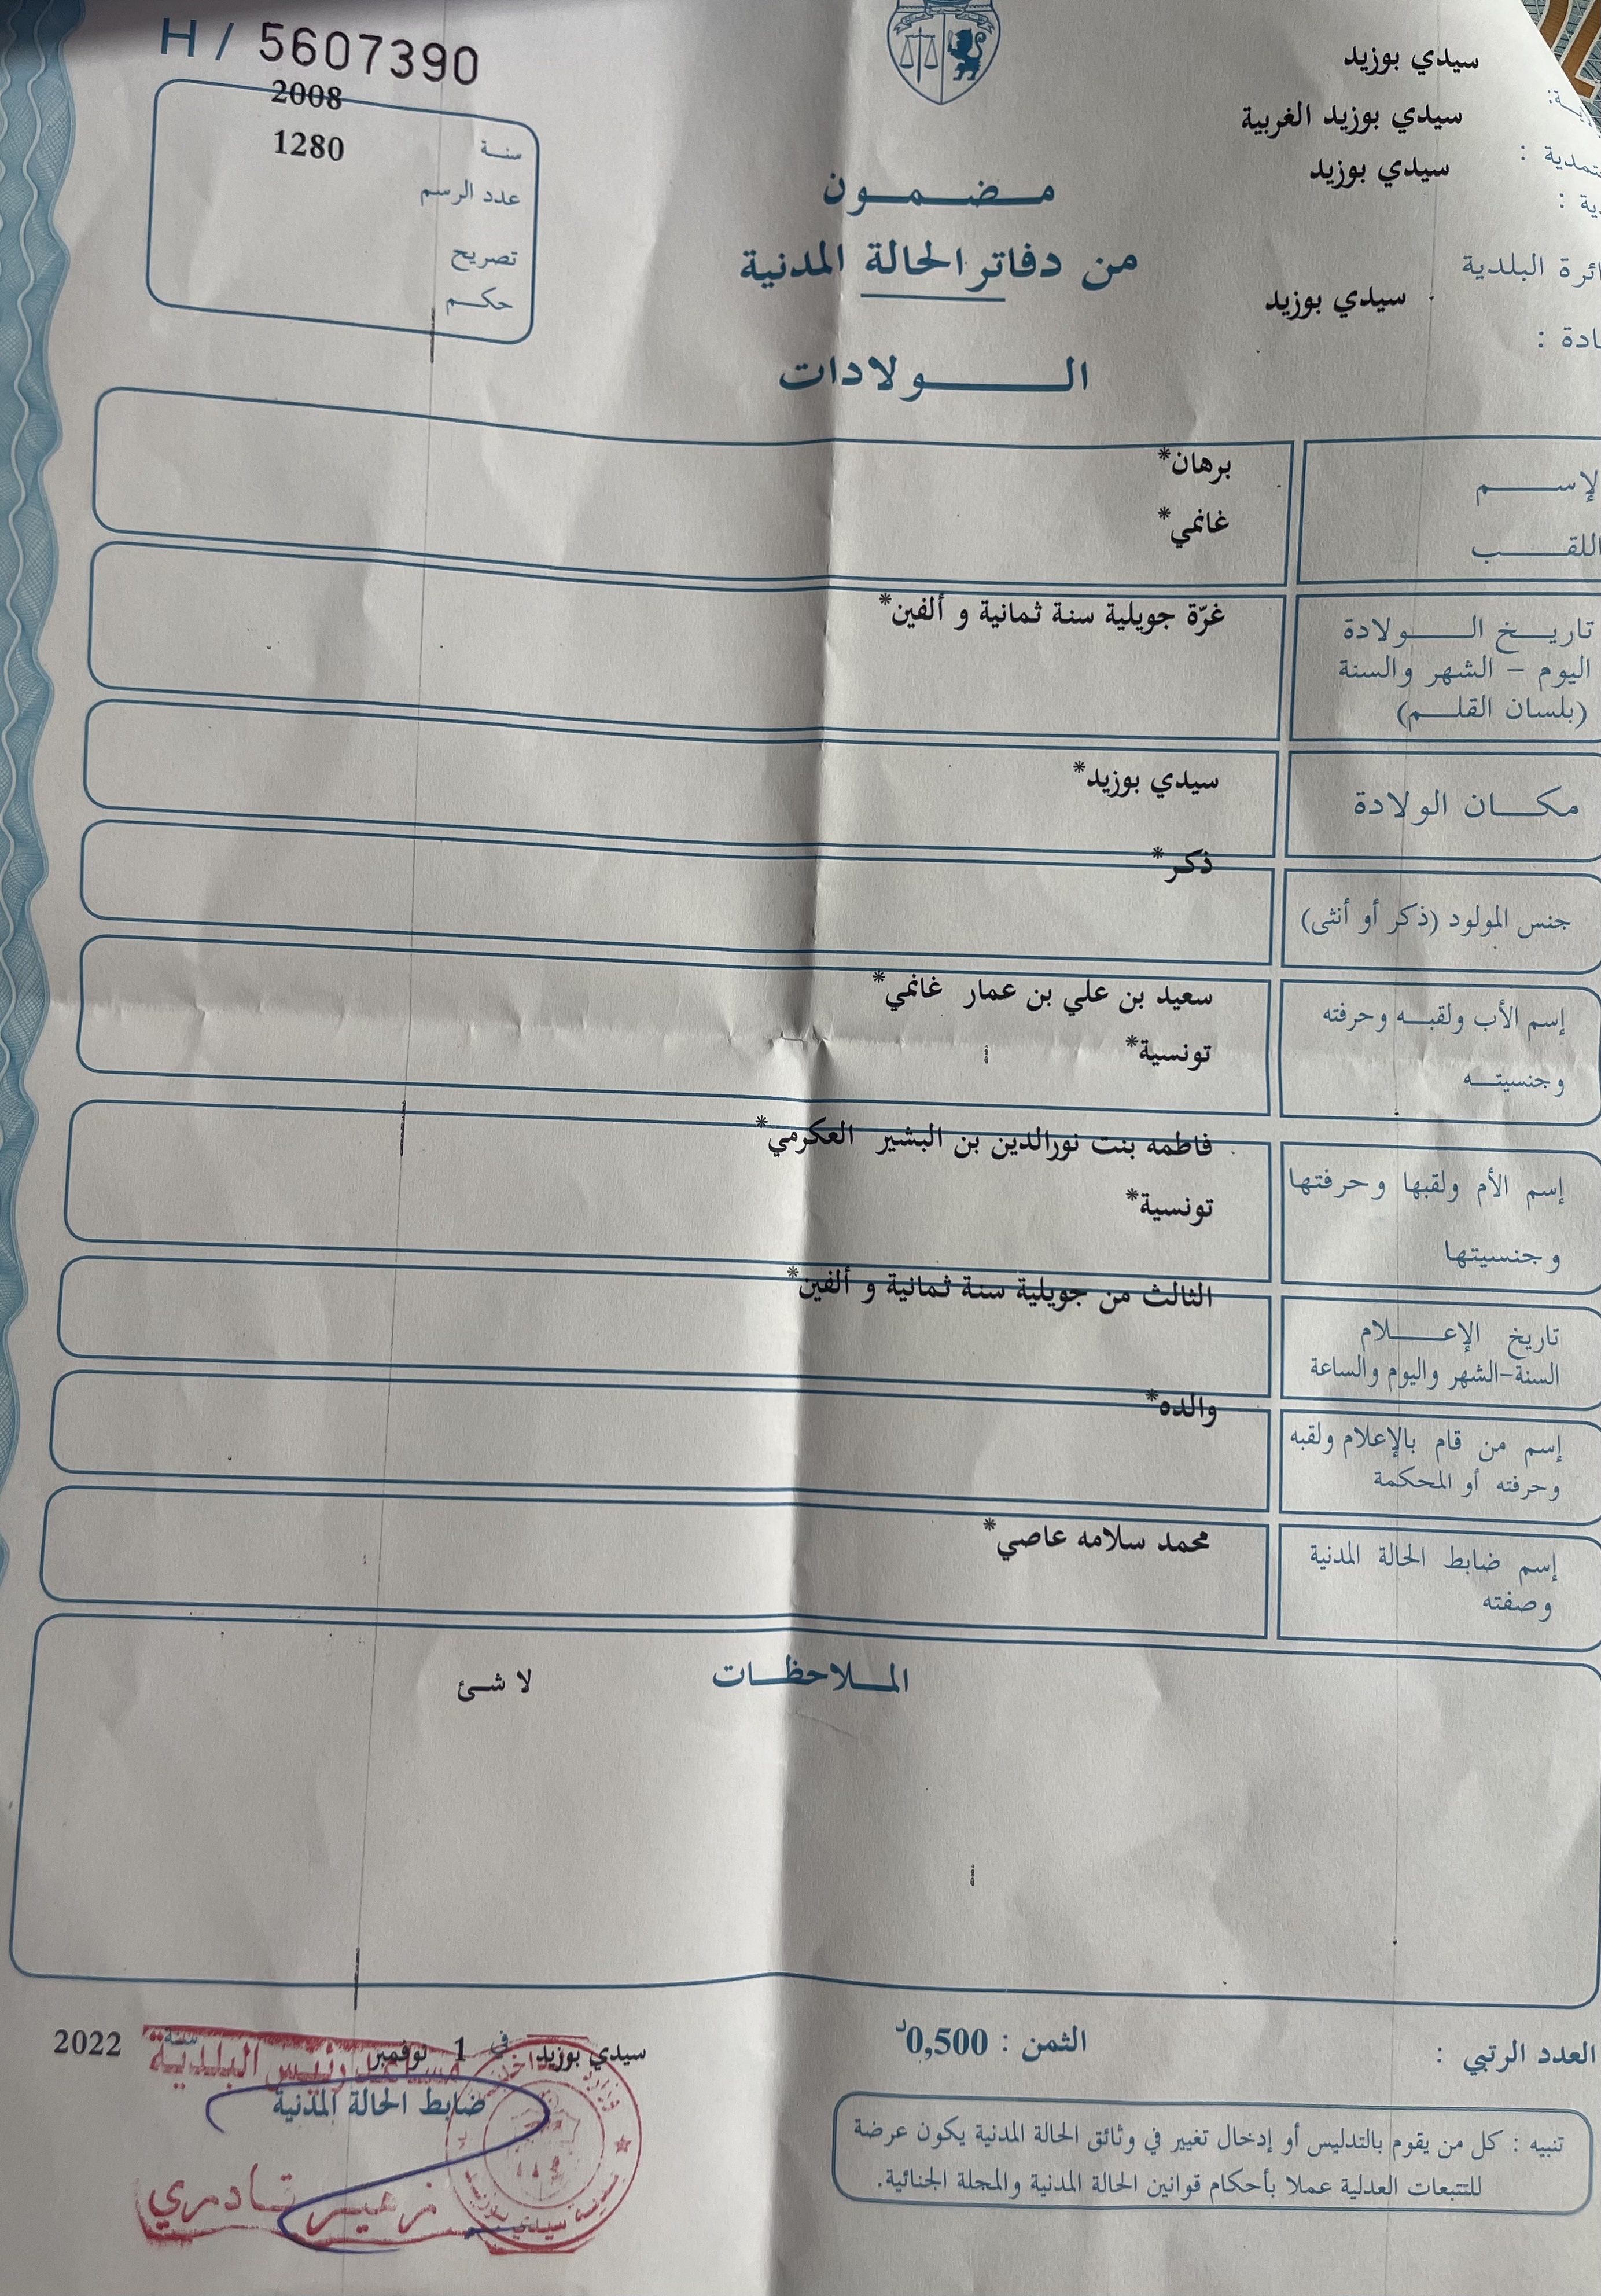 H / 5607390
2008
سنة 1280
عدد الرسم
تصريح
حكم
سيدي بوزيد
سيدي بوزيد الغربية
سيدي بوزيد
سيدي بوزيد
مضمون
من دفاتر الحالة المدنية
الولادات
برهان*
اللقب غانمي*
تاريخ الولادة غرّة جويلية سنة ثمانية و ألفين*
اليوم - الشهر والسنة
(بلسان القلم)
مكان الولادة سيدي بوزيد*
ذكر*
جنس المولود (ذكر أو أنثى)
إسم الأب ولقبه وحرفته سعيد بن علي بن عمار غانمي*
وجنسيته تونسية*
إسم الأم ولقبها وحرفتها فاطمه بنت نورالدين بن البشير العكرمي*
وجنسيتها تونسية*
تاريخ الإعلام الثالث من جويلية سنة ثمانية و ألفين*
السنة-الشهر واليوم والساعة
والده*
إسم من قام بالإعلام ولقبه
وحرفته أو المحكمة
إسم ضابط الحالة المدنية محمد سلامه عاصي*
وصفته
الملاحظات لا شئ
العدد الرتبي :
الثمن : 0,500د
سيدي بوزيد في 1 نوفمبر سنة 2022
مساعد رئيس البلدية
ضابط الحالة المدنية
زهير قادري
تنبيه : كل من يقوم بالتدليس أو إدخال تغيير في وثائق الحالة المدنية يكون عرضة
للتتبعات العدلية عملا بأحكام قوانين الحالة المدنية والمجلة الجنائية.